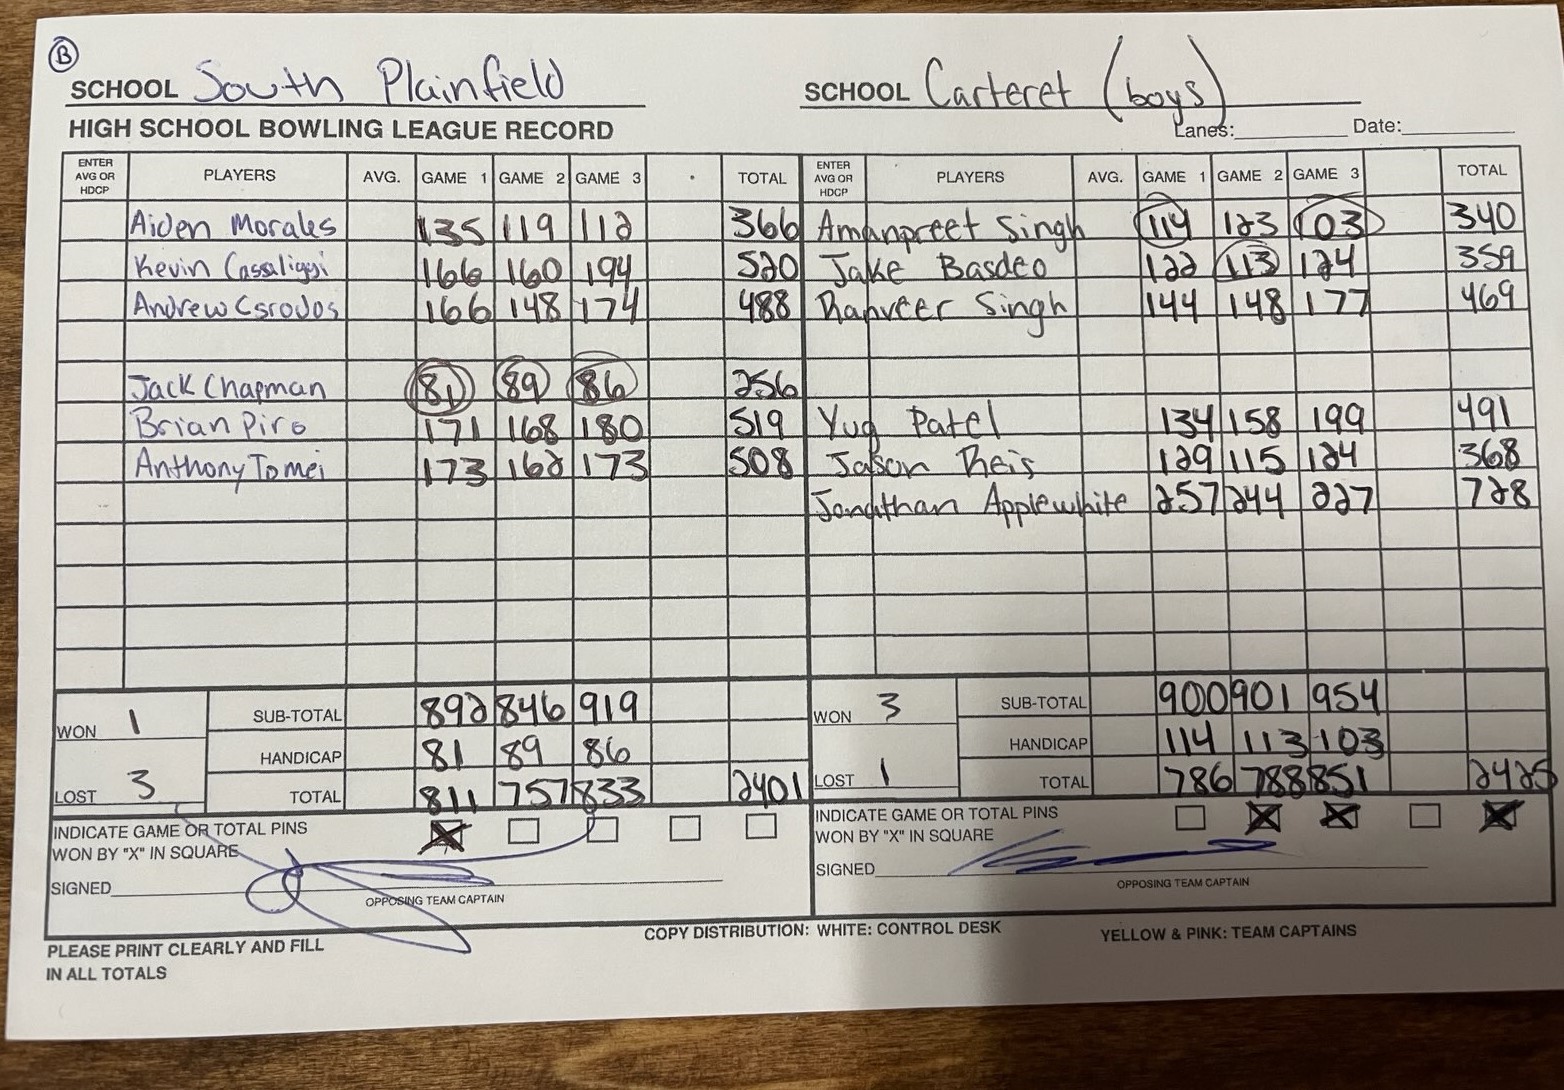 B
SCHOOL South Plainfield SCHOOL Carteret (boys)
HIGH SCHOOL BOWLING LEAGUE RECORD Lanes: Date:
ENTER AVG OR HDCP PLAYERS AVG. GAME 1 GAME 2 GAME 3 TOTAL ENTER AVG OR HDCP PLAYERS AVG. GAME 1 GAME 2 GAME 3 TOTAL
Aiden Morales 135 119 112 366 Amanpreet Singh 114 123 103 340
Kevin 166 160 194 520 Jake Basdeo 122 113 124 359
Andrew Csrodos 166 148 174 488 Ranveer Singh 144 148 177 469
Jack Chapman 81 89 86 256
Brian Piro 171 168 180 519 Yug Patel 134 158 199 491
Anthony Tomei 173 162 173 508 Jason Reis 129 115 124 368
Jonathan Applewhite 257 244 227 728
WON 1 SUB-TOTAL 892 846 919 WON 3 SUB-TOTAL 900 901 954
HANDICAP 81 89 86 HANDICAP 114 113 103
LOST 3 TOTAL 811 757 833 2401 LOST 1 TOTAL 786 788 851 2425
INDICATE GAME OR TOTAL PINS X INDICATE GAME OR TOTAL PINS X X X
WON BY "X" IN SQUARE WON BY "X" IN SQUARE
SIGNED SIGNED
OPPOSING TEAM CAPTAIN OPPOSING TEAM CAPTAIN
PLEASE PRINT CLEARLY AND FILL COPY DISTRIBUTION: WHITE: CONTROL DESK YELLOW & PINK: TEAM CAPTAINS
IN ALL TOTALS